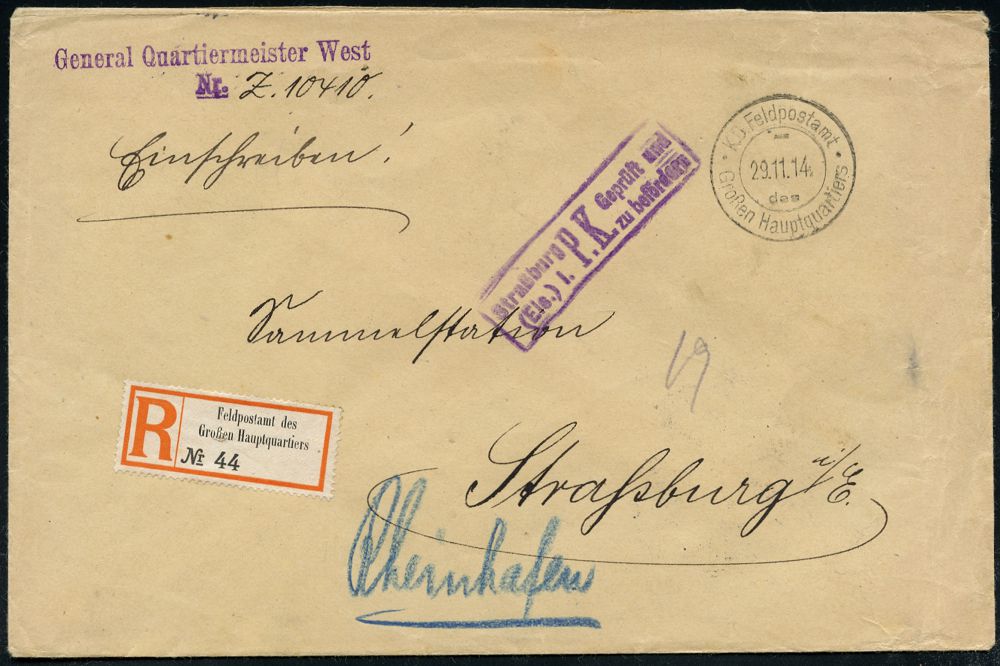 General Quartiermeister West
Nr. Z. 10410.
Einschreiben!
K.D. Feldpostamt
29.11.14.
des
Großen Hauptquartiers
Straßburg
(Els.) I.
P.K.
Geprüft und
zu befördern
Sammelstation
19
R
Feldpostamt des
Großen Hauptquartiers
№ 44
Straßburg i/E.
Rheinhafen